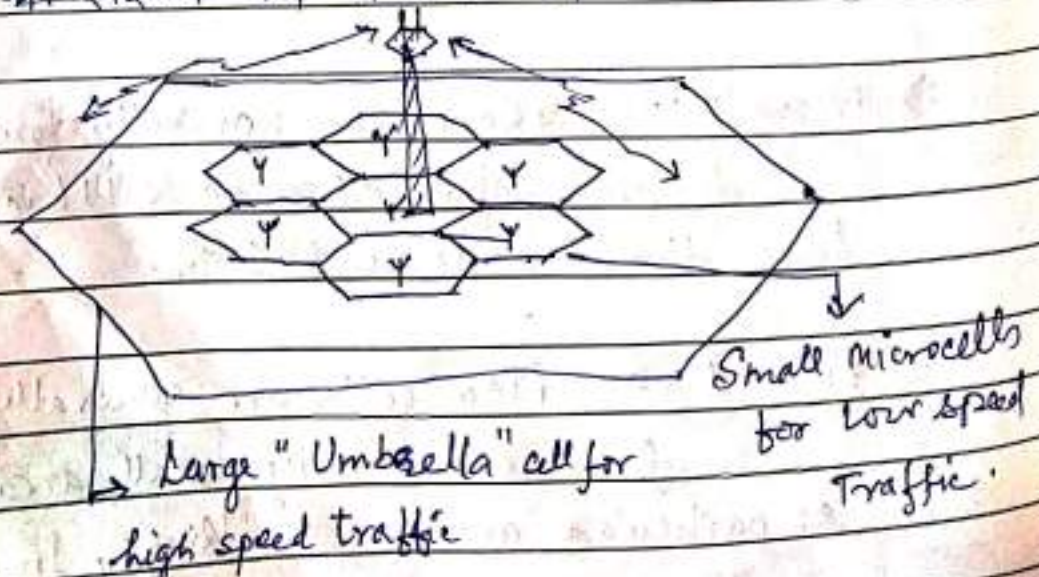 Y
Y
Y
Y
Y
Y
Y
Small Microcells
for Low speed
Traffic.
Large "Umbrella" cell for
high speed traffic